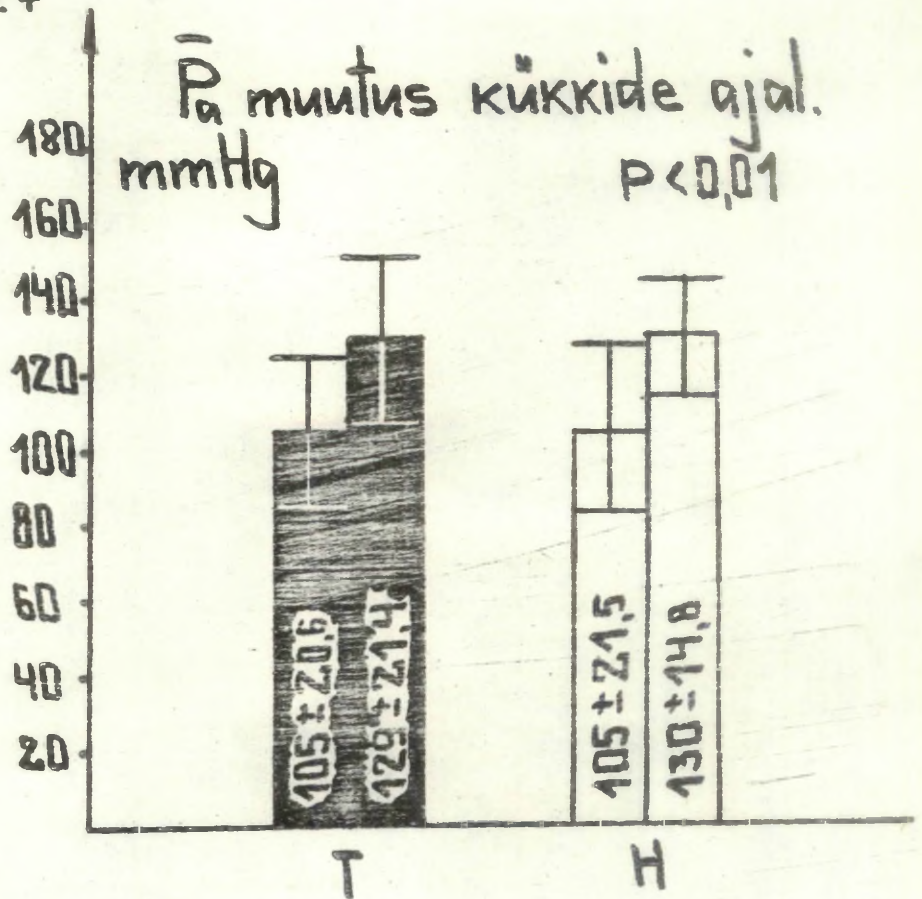 P̄a muutus kükkide ajal.
mmHg
P<0,01
180
160
140
120
100
80
60
40
20
105±20,6
129±21,4
105±21,5
130±14,8
I
II